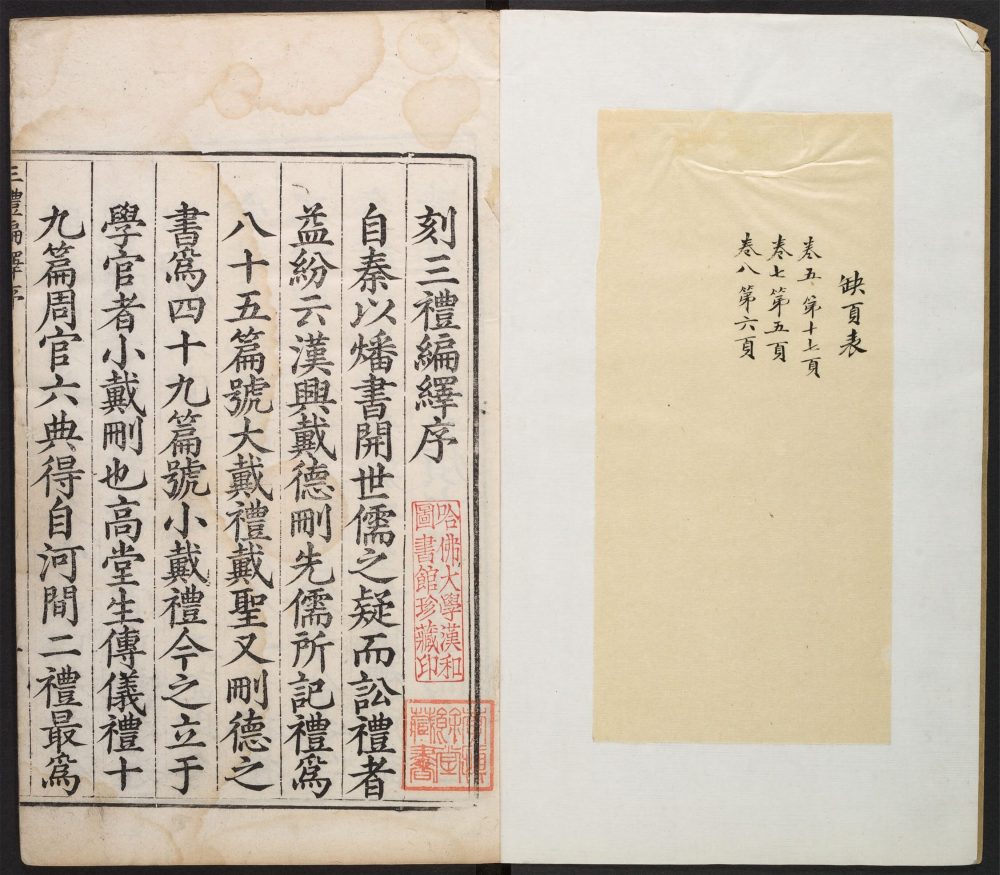 缺頁表
卷五第十七頁
卷七第五頁
卷八第六頁
刻三禮編繹序
哈佛大學漢和
圖書館珍藏印
藏書
自秦以燔書開世儒之疑而訟禮者
益紛云漢興戴德刪先儒所記禮爲
八十五篇號大戴禮戴聖又刪德之
書爲四十九篇號小戴禮今之立于
學官者小戴刪也高堂生傳儀禮十
九篇周官六典得自河間二禮最爲
三禮編繹序